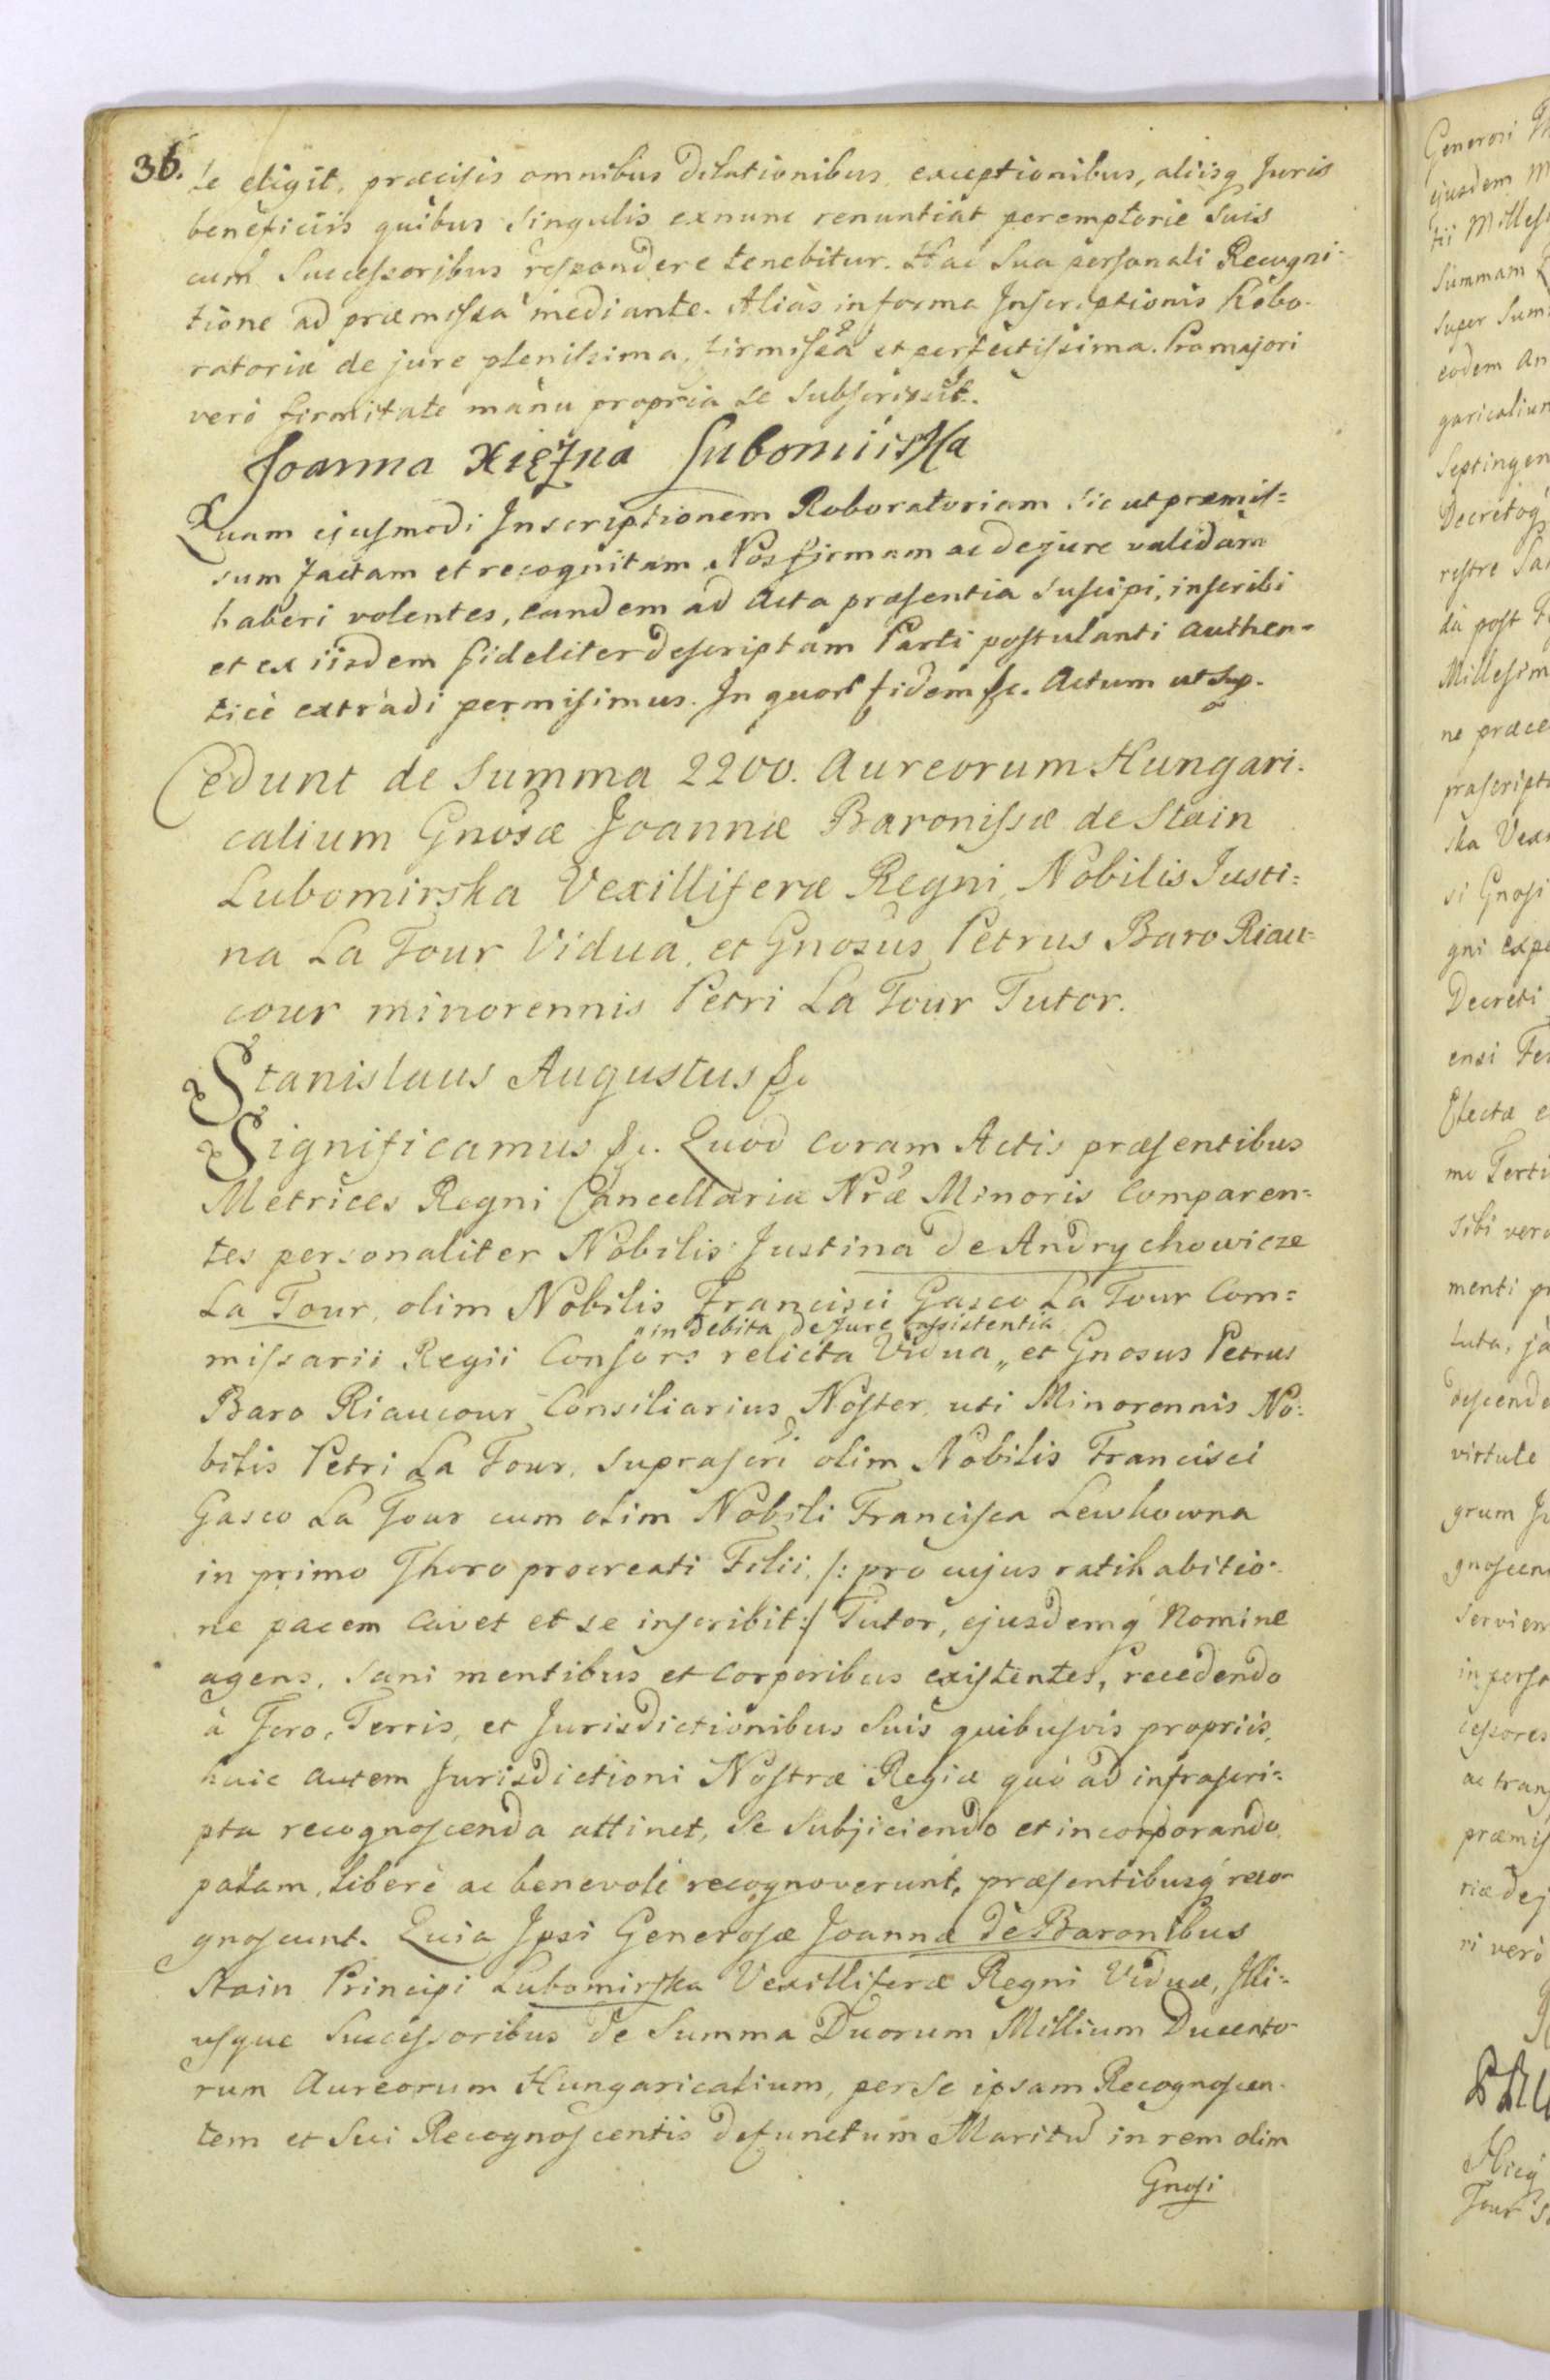 36.
se eligit, præcisis omnibus dilationibus exceptionibus, aliisq Juris
beneficiis quibus singulis exnunc renuntiat peremptorie suis
cum Successoribus respondere tenebitur. Hac Sua personali Recogni-
tione ad præmissa mediante. Aliàs in forma Inscriptionis Robo-
ratoriæ de jure plenissima, firmissa et perfectissima. Pro majori
verò firmitate manu propria se subscripsit.
Joanna Xiężna Lubomirska
Quam ejusmodi Inscriptionem Roboratoriam sic ut præmis=
sum factam et recognitam Nos firmam ac dejure validam
haberi volentes, eandem ad Acta præsentia suscipi, inscribi
et ex iisdem fideliter descriptam Parti postulanti authen=
ticè extradi permisimus. In quor fidem &c. Actum ut sup.
Cedunt de Summa 2200. Aureorum Hungari-
calium Gnosæ Joannæ Baronissæ de Stain
Lubomirska Vexilliferæ Regni, Nobilis Justi=
na La Tour Vidua, et Gnosus Petrus Baro Riau=
cour minorennis Petri La Tour Tutor.
Stanislaus Augustus &c
Significamus &c. Quod coram Actis præsentibus
Metrices Regni Cancellariæ Nræ Minoris Comparen=
tes personaliter Nobilis Justina de Andrychowicze
La Tour, olim Nobilis Francisci Gasco La Tour Com=
"in debita de Jure assistentia
missarii Regii Consors relicta Vidua " et Gnosus Petrus
Baro Riaucour Consiliarius Noster uti Minorennis No=
bilis Petri La Tour, suprascri olim Nobilis Francisci
Gasco La Tour cum olim Nobili Francisca Lewkowna
in primo Thoro procreati Filii, /: pro cujus ratihabitio-
ne pacem cavet et se inscribit :/ Tutor, ejusdemq Nomine
agens, sani mentibus et corporibus existentes, recedendo
à Foro, Terris, et Jurisdictionibus Suis quibusvis propriis,
huic autem Jurisdictioni Nostræ Regiæ quò ad infrascri=
pta recognoscenda attinet, se subjiciendo et incorporando
palam, liberè ac benevolè recognoverunt, præsentibusq reco-
gnoscunt. Quia Ipsi Generosæ Joannæ de Baronibus
Stain Principi Lubomirska Vexilliferæ Regni Viduæ, Illi=
usque Successoribus de Summa Duorum Millium Ducento-
rum Aureorum Hungaricalium, per se ipsam Recognoscen-
tem et Sui Recognoscentis defunctum Maritu in rem olim
Gnosi
Generosi
ejusdem
tii Milles
Summam
super Sum
eodem An
garicalium
Septingen
Decretoq
restre
da post
Millesim
ne præce
præscript
ska Vex
si Gnosi
gni exp
Decreti
ensi
Electæ
mo Terti
sibi vero
menti
luta,
descende
virtute
grum
gnoscen
Servien
in perso
cessores
ac trans
præmis
riæ dej
ri verò